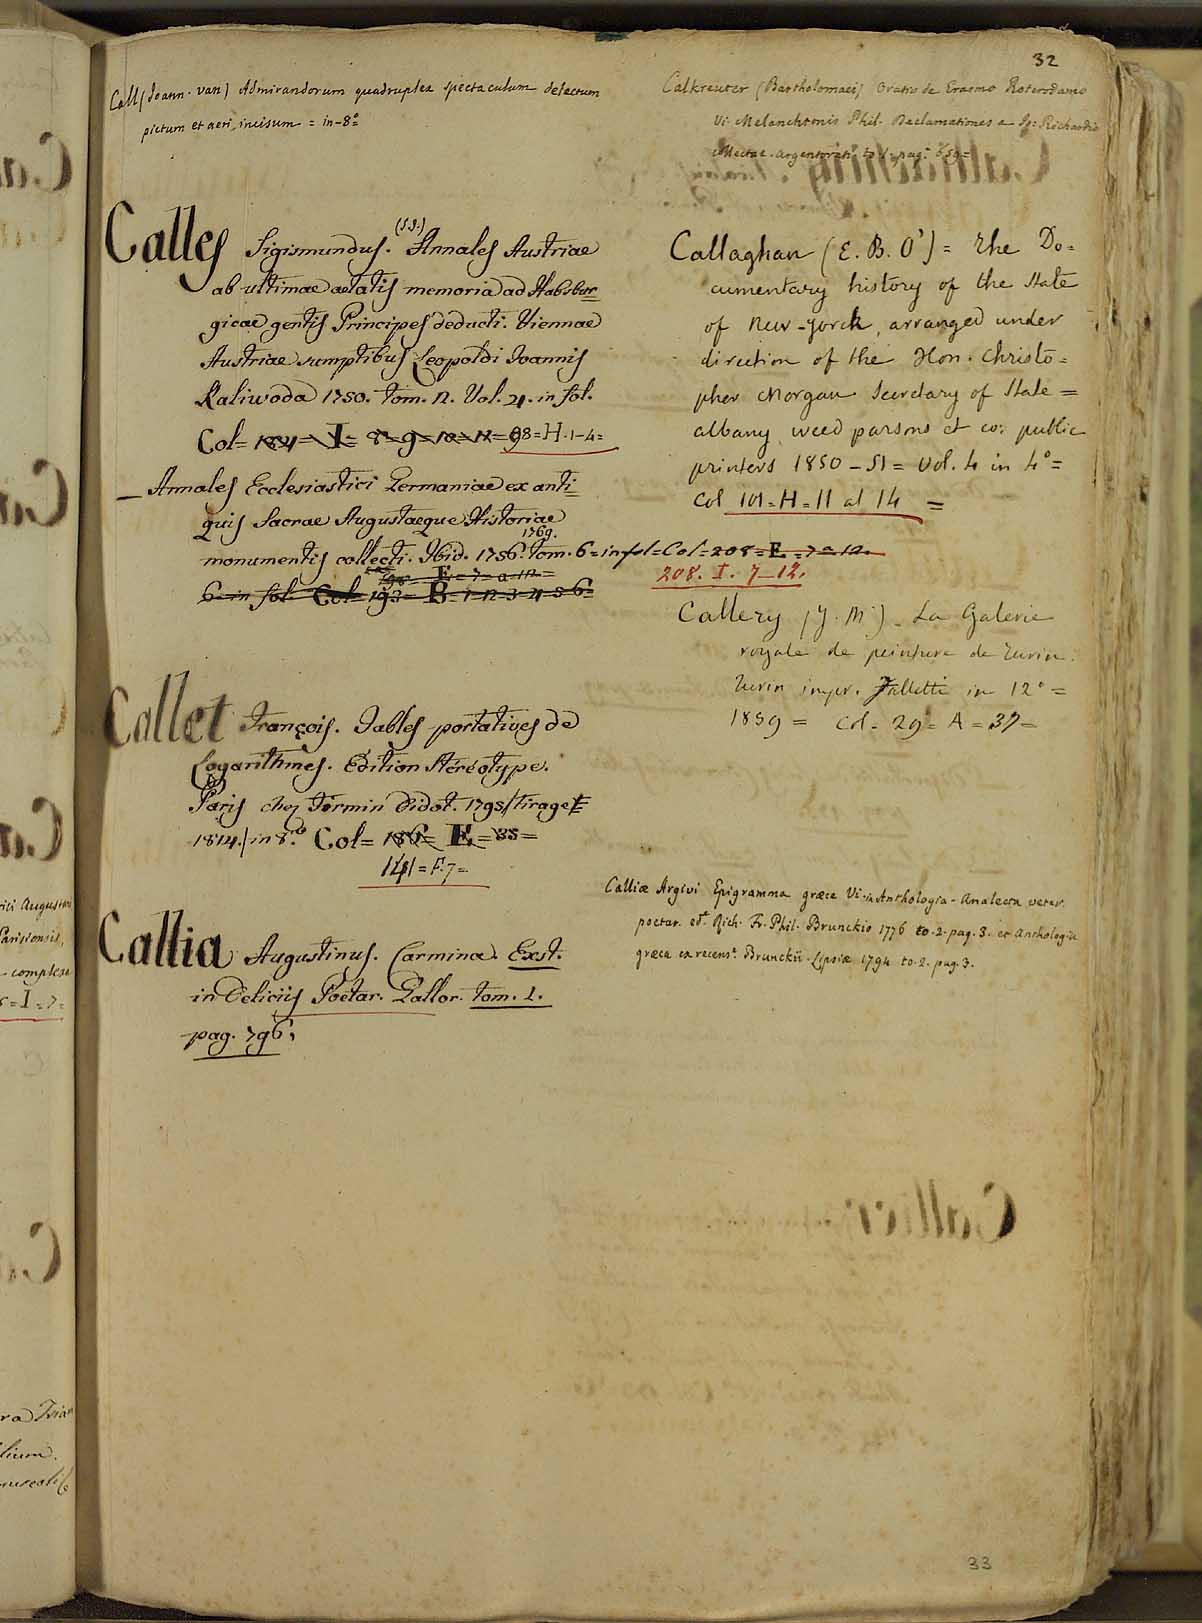 32
Call (Joann. van) Admirandorum quadruplex spectaculum delectum
pictum et aeri incisum = in-8º
Calles Sigismundus. (S.S.) Annales Austriae
ab ultimae aetatis memoria ad Habsbur=
gicae gentis Principes deducti. Viennae
Austriae sumptibus Leopoldi Joannis
Kaliwoda 1750. tom. 2. Vol. 4. in fol.
Col= 184= I= 8= 9= 10= 11= 98=H. 1-4=
— Annales Ecclesiastici Germaniae ex anti=
quis Sacrae Augustaeque Historiae
monumentis collecti. Ibid. 1756. 1769. tom. 6= in fol= Col= 208= E= 7= a 12.
198= E= 7= a 12=
6= in fol. Col= 193= B= 1-2-3-4-5-6=
208. I. 7_12.
Callet François. Tables portatives de
Logarithmes. Edition Stéréotype.
Paris chez Firmin Didot. 1795/Tirage
1814./in 8.º Col= 186= E= 35=
141= F. 7=
Callia Augustinus. Carmina. Exst.
in Deliciis Poetar. Gallor. tom. 1.
pag. 796.
Calkreuter (Bartholomaei) Oratio de Erasmo Roterodamo
Vi. Melanchtonis Phil. Declamationes a Richardio
collectae. Argentorati to. 1. pag.
Callaghan (E. B. O') = The Do=
cumentary history of the State
of New-Yorck, arranged under
direction of the Hon. Christo=
pher Morgan Secretary of State =
albany weed parsons et co: public
printers 1850_51 = Vol. 4 in 4º=
Col 101= H= 11 al 14 =
Callery (J. M.)_ La Galerie
royale de peinture de Turin.
Turin impr. Falletti in 12º =
1859 = Col= 29= A= 37=
Calliæ Argivi Epigramma græce Vi. in Anthologia - Analecta veter.
poetar. edt. Rich. Fr. Phil. Brunckio 1776 to. 2. pag. 3. et Anthologia
græca ex recenst. Brunckii. Lipsiæ 1794 to. 2. pag. 3.
33